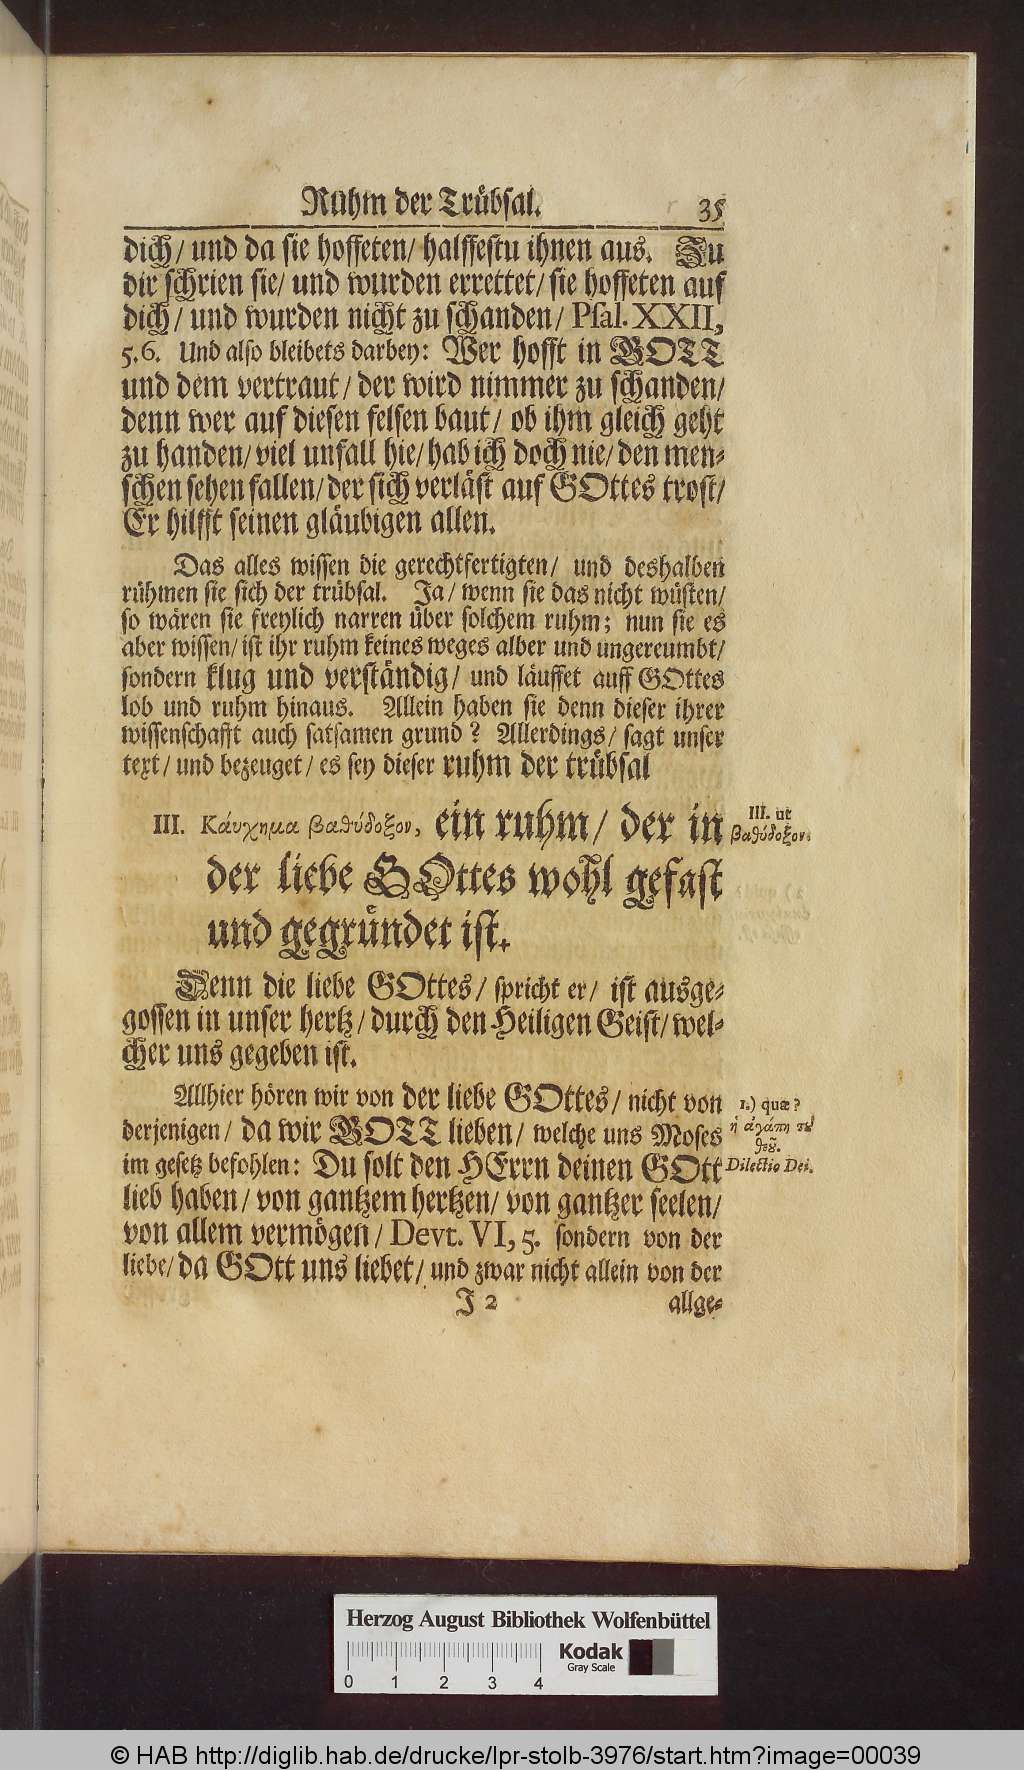 Ruhm der Trübsal. 35
dich/ und da sie hoffeten/ halffestu ihnen aus. Zu
dir schrien sie/ und wurden errettet/ sie hoffeten auf
dich/ und wurden nicht zu schanden/ Psal. XXII,
5.6. Und also bleibets darbey: Wer hofft in GOTT
und dem vertraut/ der wird nimmer zu schanden/
denn wer auf diesen felsen baut/ ob ihm gleich geht
zu handen/ viel unfall hie/ hab ich doch nie/ den men-
schen sehen fallen/ der sich verläst auf GOttes trost/
Er hilfft seinen gläubigen allen.
Das alles wissen die gerechtfertigten/ und deshalben
rühmen sie sich der trübsal. Ja/ wenn sie das nicht wüsten/
so wären sie freylich narren über solchem ruhm; nun sie es
aber wissen/ ist ihr ruhm keines weges alber und ungereumbt/
sondern klug und verständig/ und läuffet auff GOttes
lob und ruhm hinaus. Allein haben sie denn dieser ihrer
wissenschafft auch satsamen grund? Allerdings/ sagt unser
text/ und bezeuget/ es sey dieser ruhm der trübsal
III. Κάυχημα βαθύδοξον, ein ruhm/ der in
der liebe GOttes wohl gefast
und gegründet ist.
III. ut
βαθύδοξον.
Denn die liebe GOttes/ spricht er/ ist ausge-
gossen in unser hertz/ durch den Heiligen Geist/ wel-
cher uns gegeben ist.
Allhier hören wir von der liebe GOttes/ nicht von
derjenigen/ da wir GOTT lieben/ welche uns Moses
im gesetz befohlen: Du solt den HErrn deinen GOtt
lieb haben/ von gantzem hertzen/ von gantzer seelen/
von allem vermögen/ Devt. VI, 5. sondern von der
liebe/ da GOtt uns liebet/ und zwar nicht allein von der
1.) quæ?
ἡ ἀγάπη τȣ͂
θεȣ͂.
Dilectio Dei.
J 2 allge-
Herzog August Bibliothek Wolfenbüttel
Kodak
Gray Scale
0 1 2 3 4
© HAB http://diglib.hab.de/drucke/lpr-stolb-3976/start.htm?image=00039